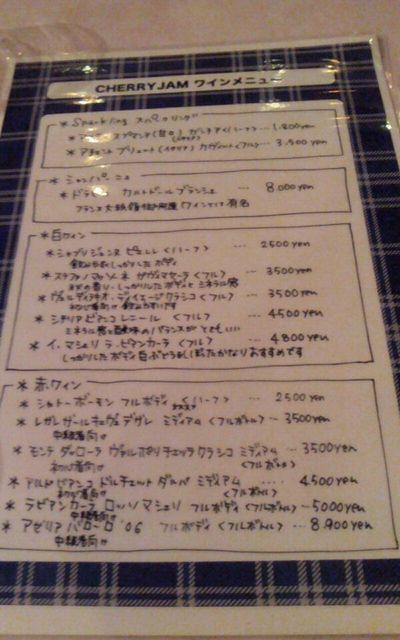 CHERRYJAM ワインメニュー
* Sparkling スパークリング
* アスティ スプマンテ (甘口) ガンチア <ハーフ> … 1.800yen
(イタリア)
* アチェント ブリュート (イタリア) カヴィット <フル> … 3.500yen
* シャンパーニュ
* ドラピエ カルトドール ブランシェ … 8.000yen
フランス大統領 ワインとして有名
* 白ワイン
* シャブリジェンヌ ピュレ <ハーフ> … 2500yen
飲みごたえしっかりした ボディ
* ステファノマッソーネ サヴィマセーラ <フル> … 3500yen
の香り・しっかりしたボディと ミネラル感
* ヴェルディッキオ・デイ・イエージクラシコ <フル> … 3500yen
初心者向け 飲みやすいです
* シチリア ビアンコ レニール <フル> … 4500yen
ミネラル感と酸味の バランスが とてもいい
* イ.マシェリ ラ・ビアンカーラ <フル> … 4800yen
しっかりした ボディ 白ぶどう かなりおすすめです
* 赤ワイン
* シャトーボーモン フルボディ <ハーフ> … 2500yen
おススメ
* レガレガールキュヴェデザレ ミディアム <フルボトル> … 3500yen
中級者向け
* モンテ ダッローラ ヴァルポリチェッラ クラシコ ミディアム … 3500yen
初心者向け <フルボトル>
* アルド ビアンコ ドルチェット ダルバ ミディアム … 4.500yen
初心者向け <フルボトル>
* ラビアンカーラ ロッソ マシェリ フルボディ <フルボトル> … 5000yen
中級者向け
* アゼリア バローロ '06 フルボディ <フルボトル> … 8.900yen
中級者向け